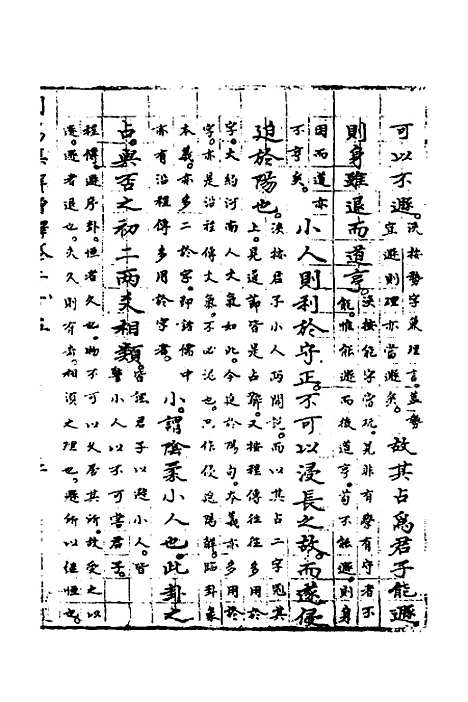 可以不遯。浹按勢字兼理言。蓋勢
宜遯則理亦當遯矣。故其占爲君子能遯
則身雖退而道亨。浹按能字當玩。見非有學有守者不
能。惟能遯而後道亨。苟不能遯。則身
因而道亦
不亨矣。小人則利於守正。不可以浸長之故。而遂侵
迫於陽也。浹按君子小人兩開說。而以其占二字冠其
上。見這節皆是占辭。又按程傳往往多用於
字。大約河南人文氣如此。今迫於陽句。本義亦多用於
字。亦是沿程傳文氣。不必泥也。只作侵迫陽解。臨卦彖
本義。亦多二於字。即諸儒中
亦有沿程傳多用於字者。小。謂陰柔小人也。此卦之
占。與否之初二兩爻相類。皆謂君子以遯小人。皆
警小人以不可害君子。
程傳。遯序卦。恒者久也。物不可以久居其所。故受之以
遯。遯者退也。夫久則有去。相須之理也。遯所以繼恒也。